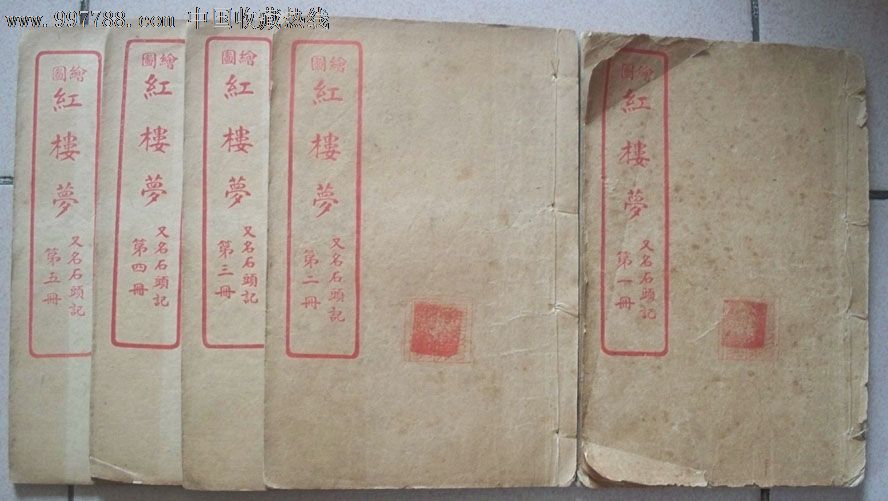 www.997788.com 中国收藏热线
繪圖
紅樓夢
又名石頭記
第一冊
繪圖
紅樓夢
又名石頭記
第二冊
繪圖
紅樓夢
又名石頭記
第三冊
繪圖
紅樓夢
又名石頭記
第四冊
繪圖
紅樓夢
又名石頭記
第五冊